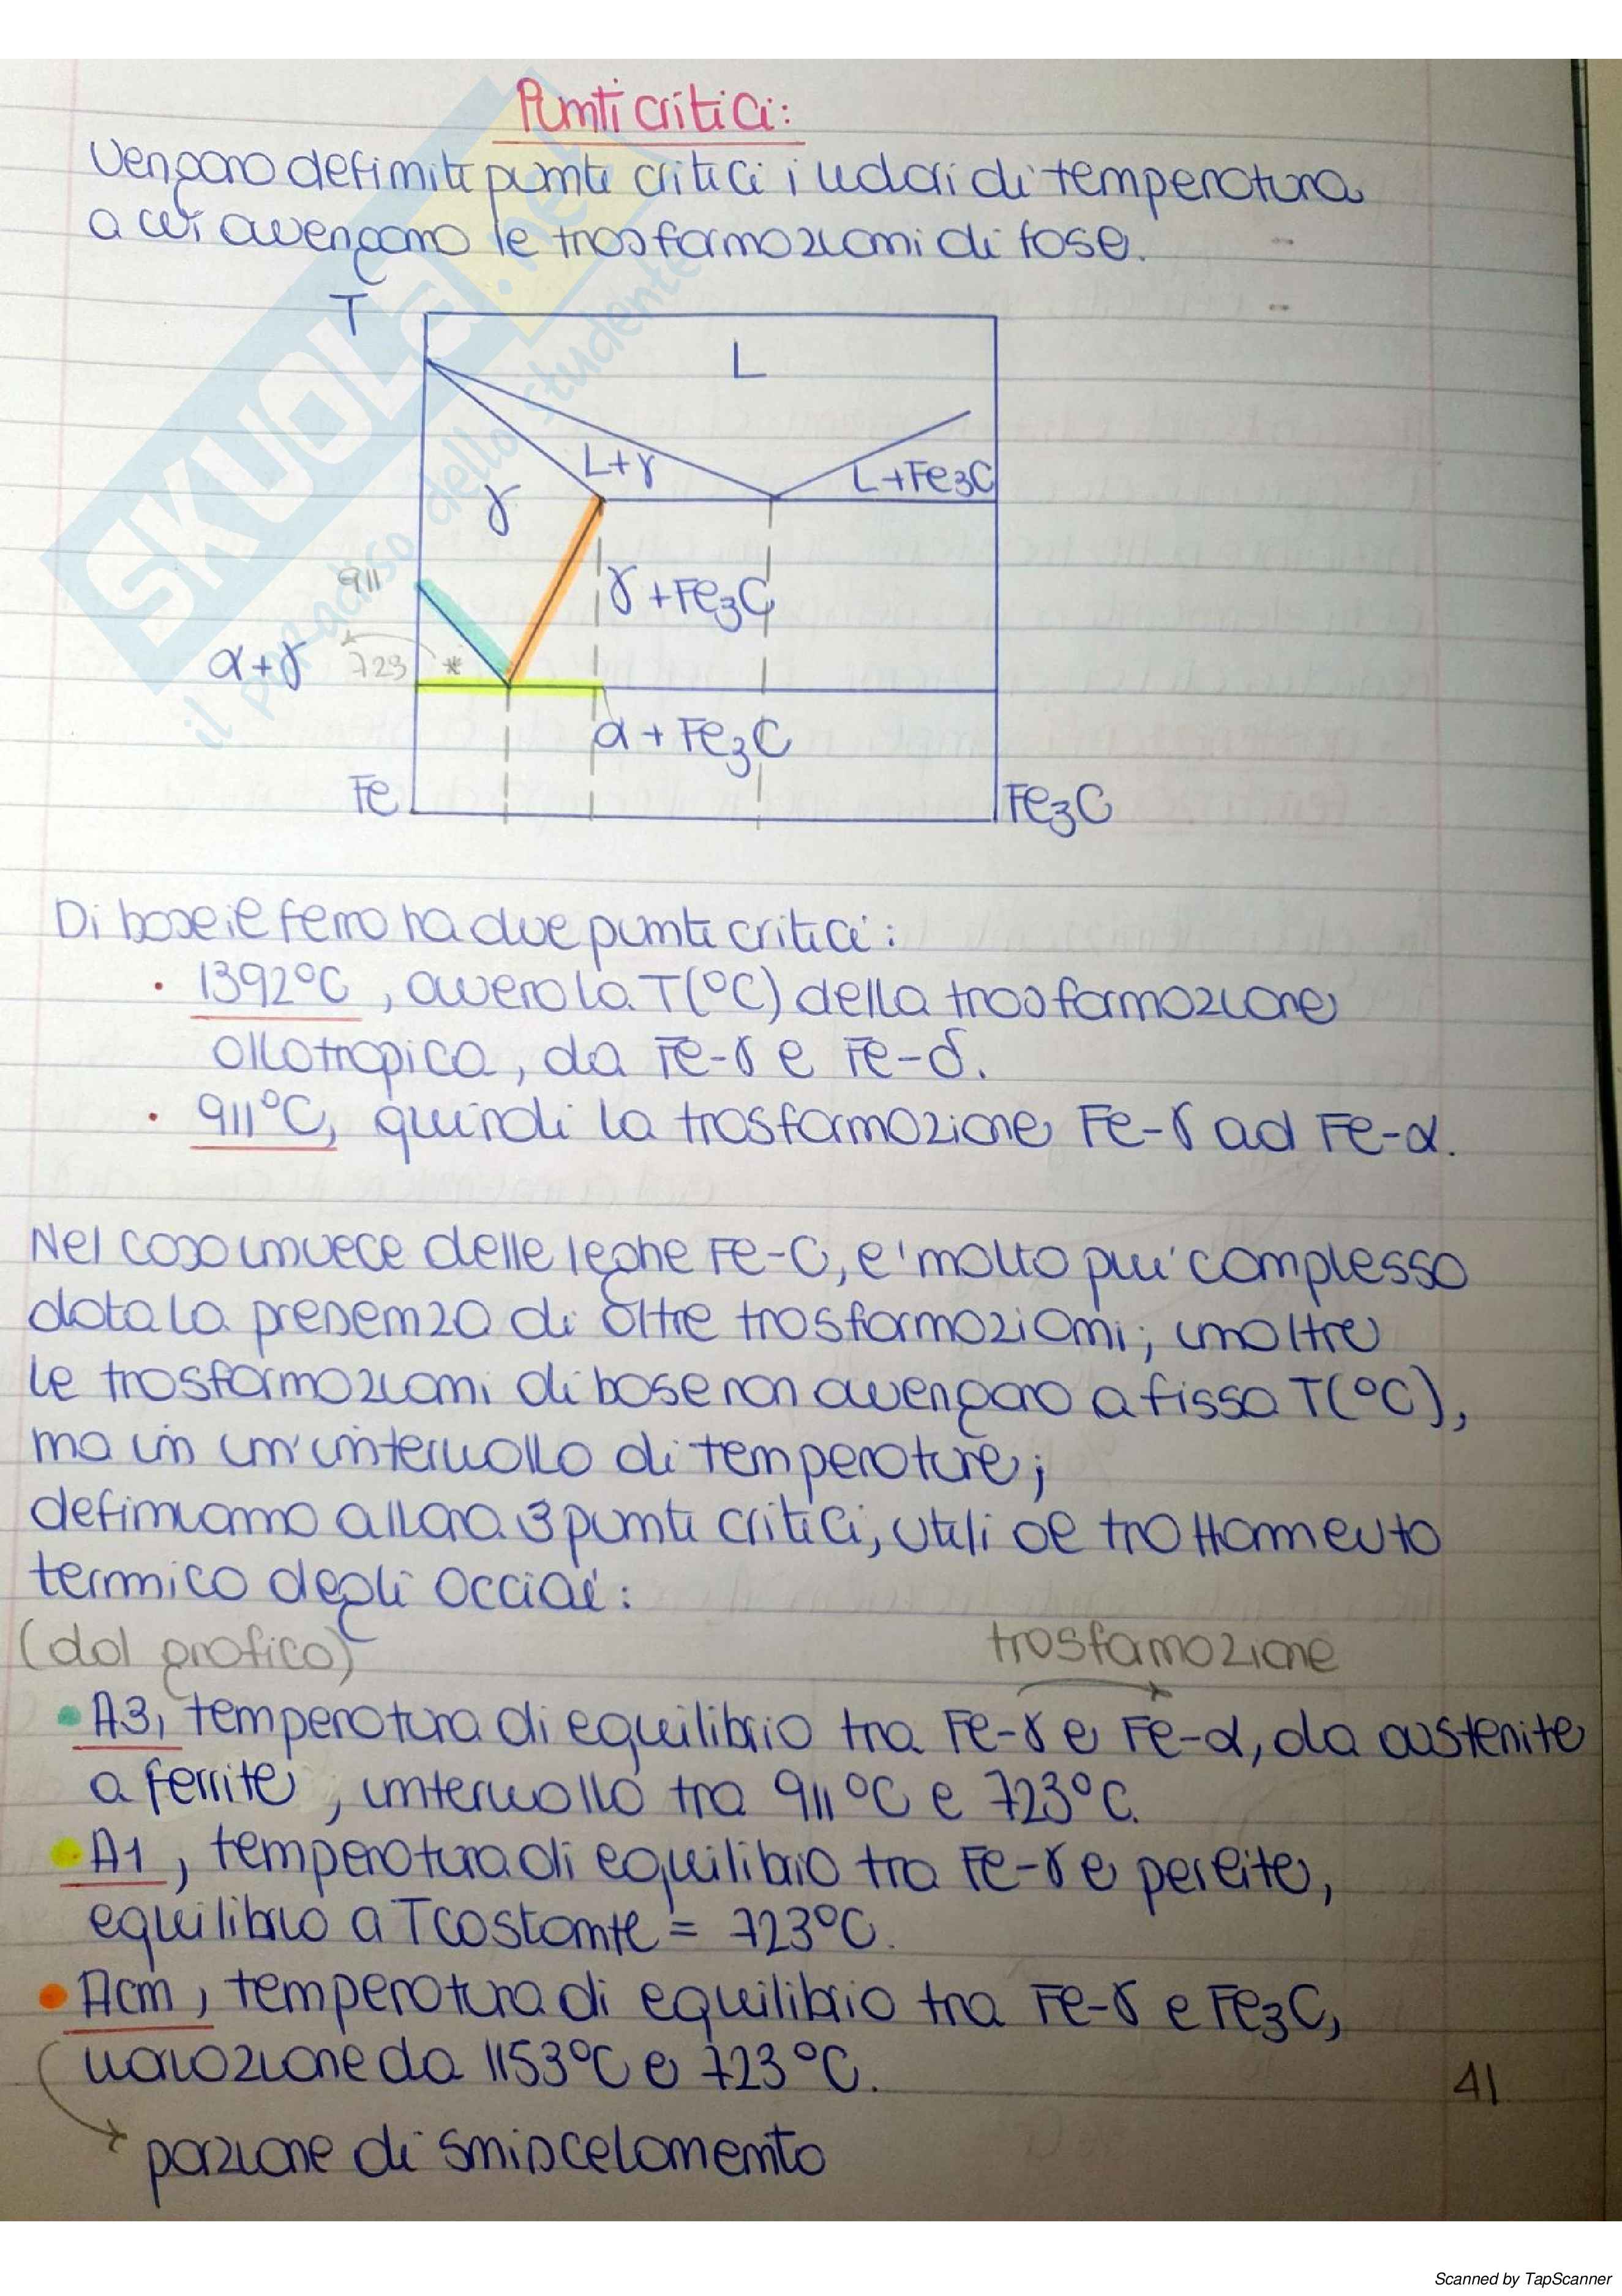 Punti critici:
Vengono definiti punti critici i valori di temperatura
a cui avvengono le trasformazioni di fase.
T
L
L+γ
L+Fe3C
γ
911
γ+Fe3C
α+γ
723
*
α+Fe3C
Fe
Fe3C
Di base il ferro ha due punti critici:
· 1392°C, ovvero la T(°C) della trasformazione
allotropica, da Fe-γ e Fe-δ.
· 911°C, quindi la trasformazione Fe-γ ad Fe-α.
Nel caso invece delle leghe Fe-C, e' molto piu' complesso
data la presenza di altre trasformazioni; inoltre
le trasformazioni di base non avvengono a fissa T(°C),
ma in un'intervallo di temperature;
definiamo allora 3 punti critici, utili al trattamento
termico degli acciai:
(dal grafico)
trasformazione
• A3, temperatura di equilibrio tra Fe-γ e Fe-α, da austenite
a ferrite, intervallo tra 911°C e 723°C.
• A1, temperatura di equilibrio tra Fe-γ e perlite,
equilibrio a T costante = 723°C.
• Acm, temperatura di equilibrio tra Fe-γ e Fe3C,
variazione da 1153°C e 723°C.
41
porzione di smiscelamento
SKUOLA.net
il paradiso dello studente
Scanned by TapScanner